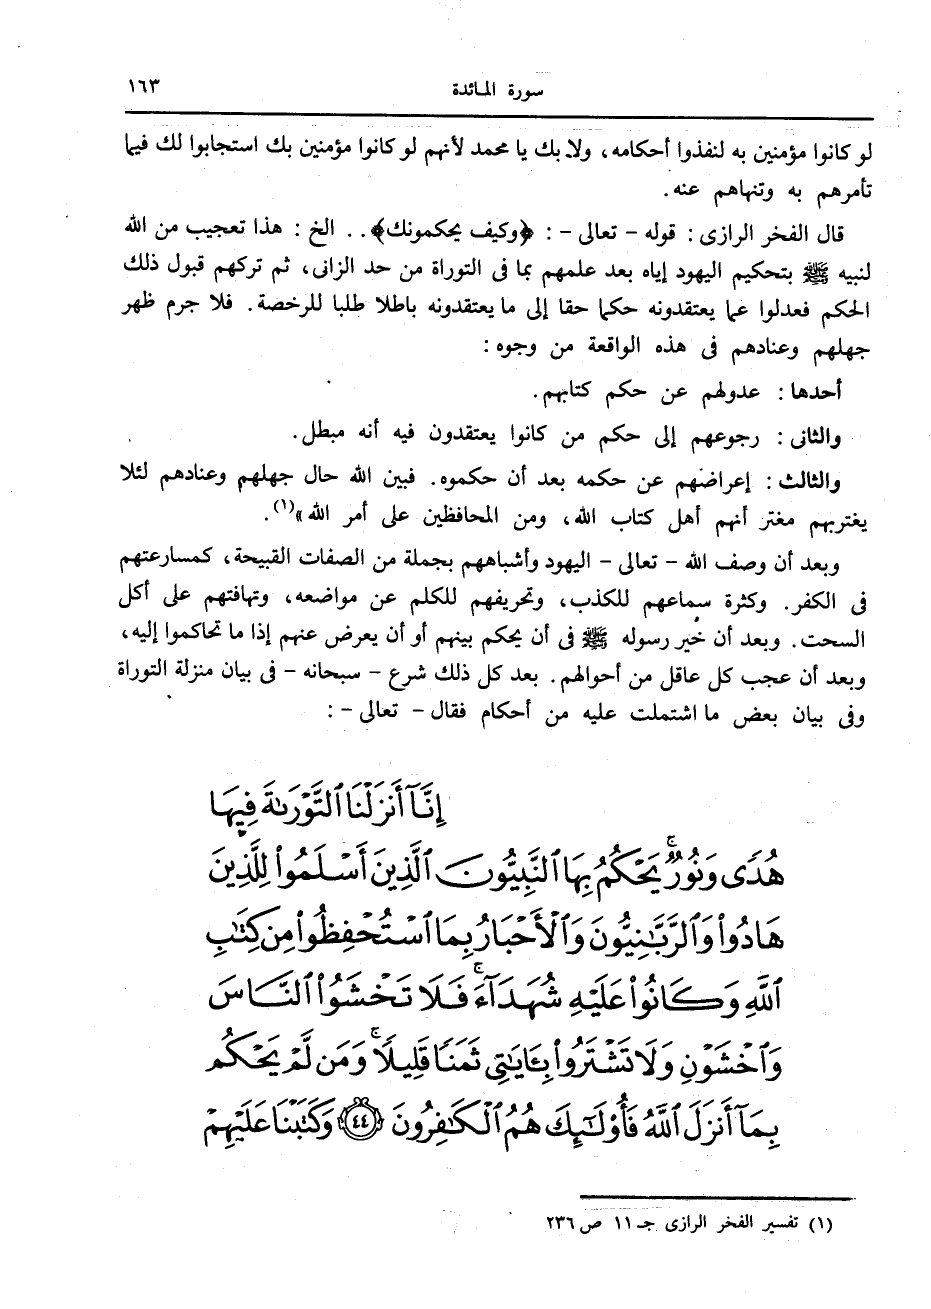 سورة المائدة ١٦٣
لو كانوا مؤمنين به لنفذوا أحكامه، ولا بك يا محمد لأنهم لو كانوا مؤمنين بك استجابوا لك فيما
تأمرهم به وتنهاهم عنه.
قال الفخر الرازى: قوله - تعالى -: ﴿وكيف يحكمونك﴾.. الخ: هذا تعجيب من الله
لنبيه ﷺ بتحكيم اليهود إياه بعد علمهم بما فى التوراة من حد الزانى، ثم تركهم قبول ذلك
الحكم فعدلوا عما يعتقدونه حكما حقا إلى ما يعتقدونه باطلا طلبا للرخصة. فلا جرم ظهر
جهلهم وعنادهم فى هذه الواقعة من وجوه:
أحدها: عدولهم عن حكم كتابهم.
والثانى: رجوعهم إلى حكم من كانوا يعتقدون فيه أنه مبطل.
والثالث: إعراضهم عن حكمه بعد أن حكموه. فبين الله حال جهلهم وعنادهم لئلا
يغتر بهم مغتر أنهم أهل كتاب الله، ومن المحافظين على أمر الله»(١).
وبعد أن وصف الله - تعالى - اليهود وأشباههم بجملة من الصفات القبيحة، كمسارعتهم
فى الكفر. وكثرة سماعهم للكذب، وتحريفهم للكلم عن مواضعه، وتهافتهم على أكل
السحت. وبعد أن خير رسوله ﷺ فى أن يحكم بينهم أو أن يعرض عنهم إذا ما تحاكموا إليه،
وبعد أن عجب كل عاقل من أحوالهم. بعد كل ذلك شرع - سبحانه - فى بيان منزلة التوراة
وفى بيان بعض ما اشتملت عليه من أحكام فقال - تعالى -:
إِنَّآ أَنزَلْنَا ٱلتَّوْرَىٰةَ فِيهَا
هُدًى وَنُورٌ ۚ يَحْكُمُ بِهَا ٱلنَّبِيُّونَ ٱلَّذِينَ أَسْلَمُوا۟ لِلَّذِينَ
هَادُوا۟ وَٱلرَّبَّٰنِيُّونَ وَٱلْأَحْبَارُ بِمَا ٱسْتُحْفِظُوا۟ مِن كِتَٰبِ
ٱللَّهِ وَكَانُوا۟ عَلَيْهِ شُهَدَآءَ ۚ فَلَا تَخْشَوُا۟ ٱلنَّاسَ
وَٱخْشَوْنِ وَلَا تَشْتَرُوا۟ بِـَٔايَٰتِى ثَمَنًا قَلِيلًا ۚ وَمَن لَّمْ يَحْكُم
بِمَآ أَنزَلَ ٱللَّهُ فَأُو۟لَٰٓئِكَ هُمُ ٱلْكَٰفِرُونَ ٤٤ وَكَتَبْنَا عَلَيْهِمْ
(١) تفسير الفخر الرازى جـ ١١ ص ٢٣٦